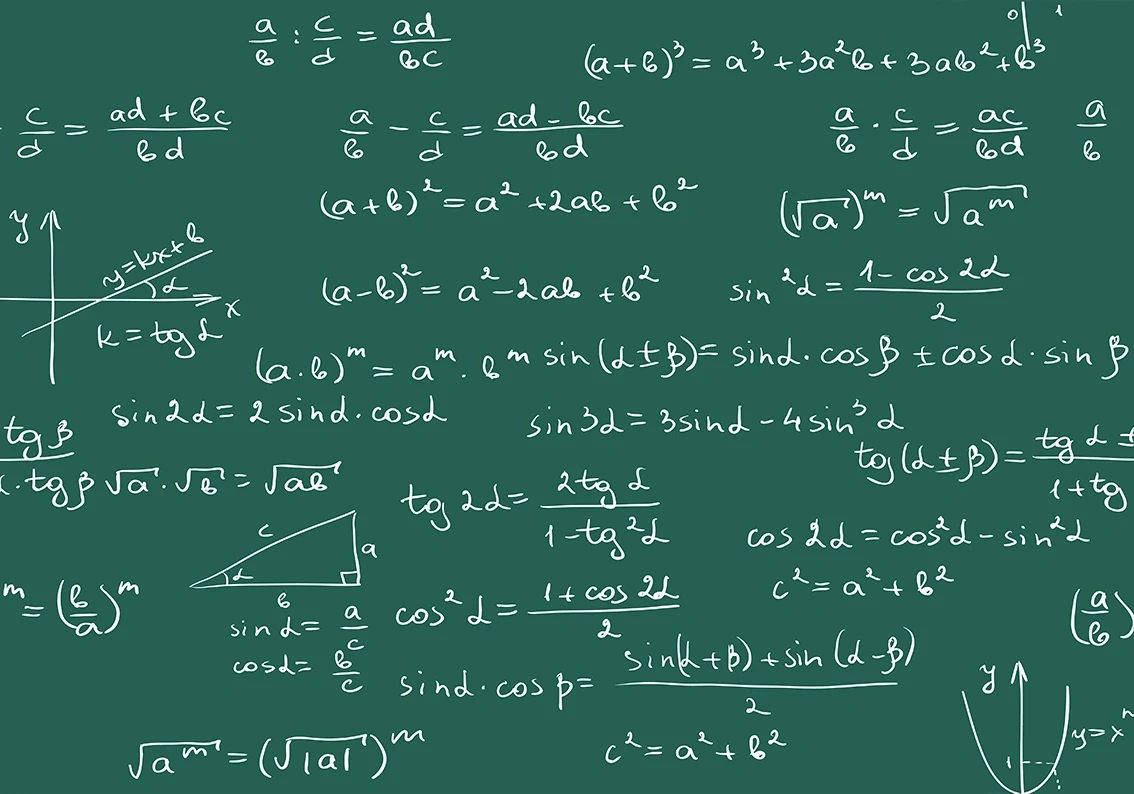 a/b : c/d = ad/bc
0 1
(a+b)³ = a³ + 3a²b + 3ab² + b³
c/d = (ad + bc)/bd
a/b - c/d = (ad - bc)/bd
a/b · c/d = ac/bd
a/b
(a+b)² = a² + 2ab + b²
(√a)^m = √(a^m)
y
y=kx+b
α
x
k = tg α
(a-b)² = a² - 2ab + b²
sin²α = (1 - cos 2α)/2
(a·b)^m = a^m · b^m
sin(α±β) = sinα · cosβ ± cosα · sinβ
sin2α = 2 sinα · cosα
sin3α = 3sinα - 4sin³α
tg β
· tg β
√a · √b = √ab
tg 2α = 2tg α/(1 - tg²α)
tg(α±β) = tg α ±
1 + tg
cos 2α = cos²α - sin²α
c² = a² + b²
c
a
α
b
m = (b/a)^m
sin α = a/c
cos α = b/c
cos²α = (1 + cos 2α)/2
(a/b)
sinα · cos β = (sin(α+β) + sin(α-β))/2
√(a^m) = (√|a|)^m
c² = a² + b²
y
y = x^n
1